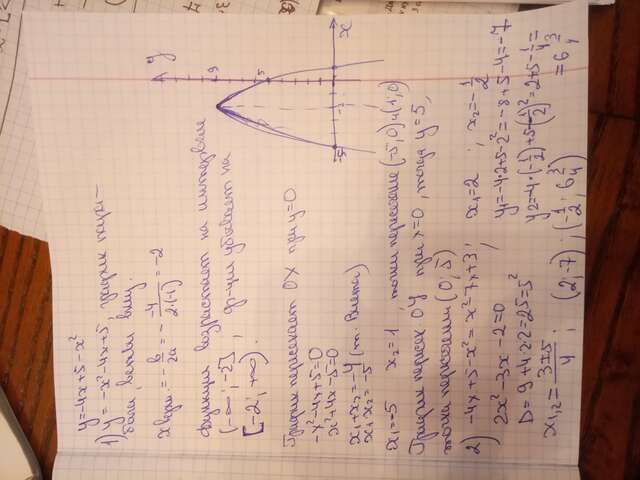 y=-4x+5-x²
1) y=-x²-4x+5, график пара-
бола, ветви вниз.
x верш.=-b/2a=-(-4)/2(-1)=-2
y
9
5
x
-2
-5
1
Функция возрастает на интервале
(-∞; -2] ; ф-ция убывает на
[-2; +∞).
График пересекает OX при y=0
-x²-4x+5=0
x²+4x-5=0
x₁+x₂=-4 (т. Виета)
x₁x₂=-5
x₁=-5 x₂=1 точки пересечения (-5; 0) и (1; 0)
График пересек. OY при x=0, тогда y=5,
точка пересечения (0; 5)
2) -4x+5-x²=x²-7x+3;
2x²-3x-2=0 ;
D=9+4·2·2=25=5²
x₁,₂=(3±5)/4 ; x₁=2 ; x₂=-1/2
y₁=-4·2+5-2²=-8+5-4=-7
y₂=-4·(-1/2)+5-(-1/2)²=2+5-1/4=
=6 3/4
(2; -7) ; (-1/2; 6 3/4)